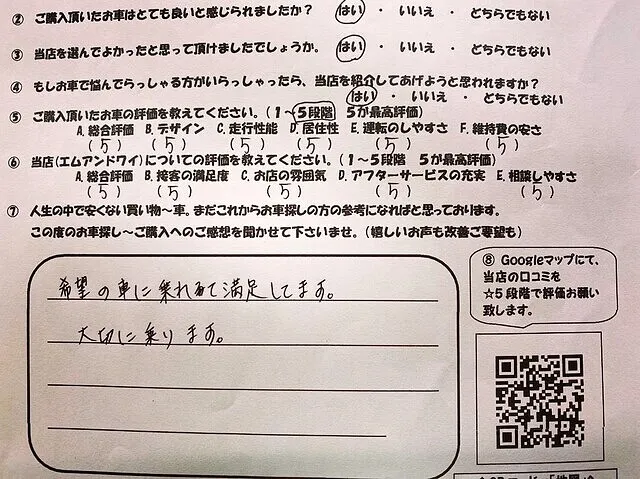 ② ご購入頂いたお車はとても良いと感じられましたか? はい ・ いいえ ・ どちらでもない
③ 当店を選んでよかったと思って頂けましたでしょうか。 はい ・ いいえ ・ どちらでもない
④ もしお車で悩んでらっしゃる方がいらっしゃったら、当店を紹介してあげようと思われますか?
はい ・ いいえ ・ どちらでもない
⑤ ご購入頂いたお車の評価を教えてください。(1~5段階 5が最高評価)
A. 総合評価 B. デザイン C. 走行性能 D. 居住性 E. 運転のしやすさ F. 維持費の安さ
(5) (5) (5) (5) (5) (5)
⑥ 当店(エムアンドワイ)についての評価を教えてください。(1~5段階 5が最高評価)
A. 総合評価 B. 接客の満足度 C. お店の雰囲気 D. アフターサービスの充実 E. 相談しやすさ
(5) (5) (5) (5) (5)
⑦ 人生の中で安くない買い物~車。まだこれからお車探しの方の参考になればと思っております。
この度のお車探し~ご購入へのご感想を聞かせて下さいませ。(嬉しいお声も改善ご要望も)
希望の車に乗れて満足してます。
大切に乗ります。
⑧ Googleマップにて、
当店の口コミを
☆5段階で評価お願い
致します。